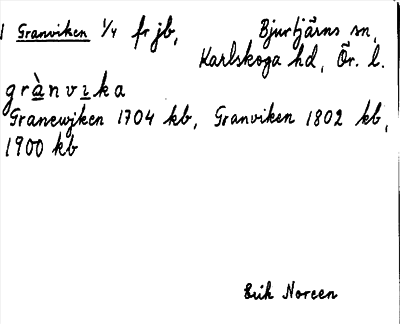 1 Granviken 1/4 fr jb, Bjurtjärns sn,
Karlskoga hd, Ör. l.
grànvika
Granewjken 1704 kb, Granviken 1802 kb,
1900 kb
Erik Noreen